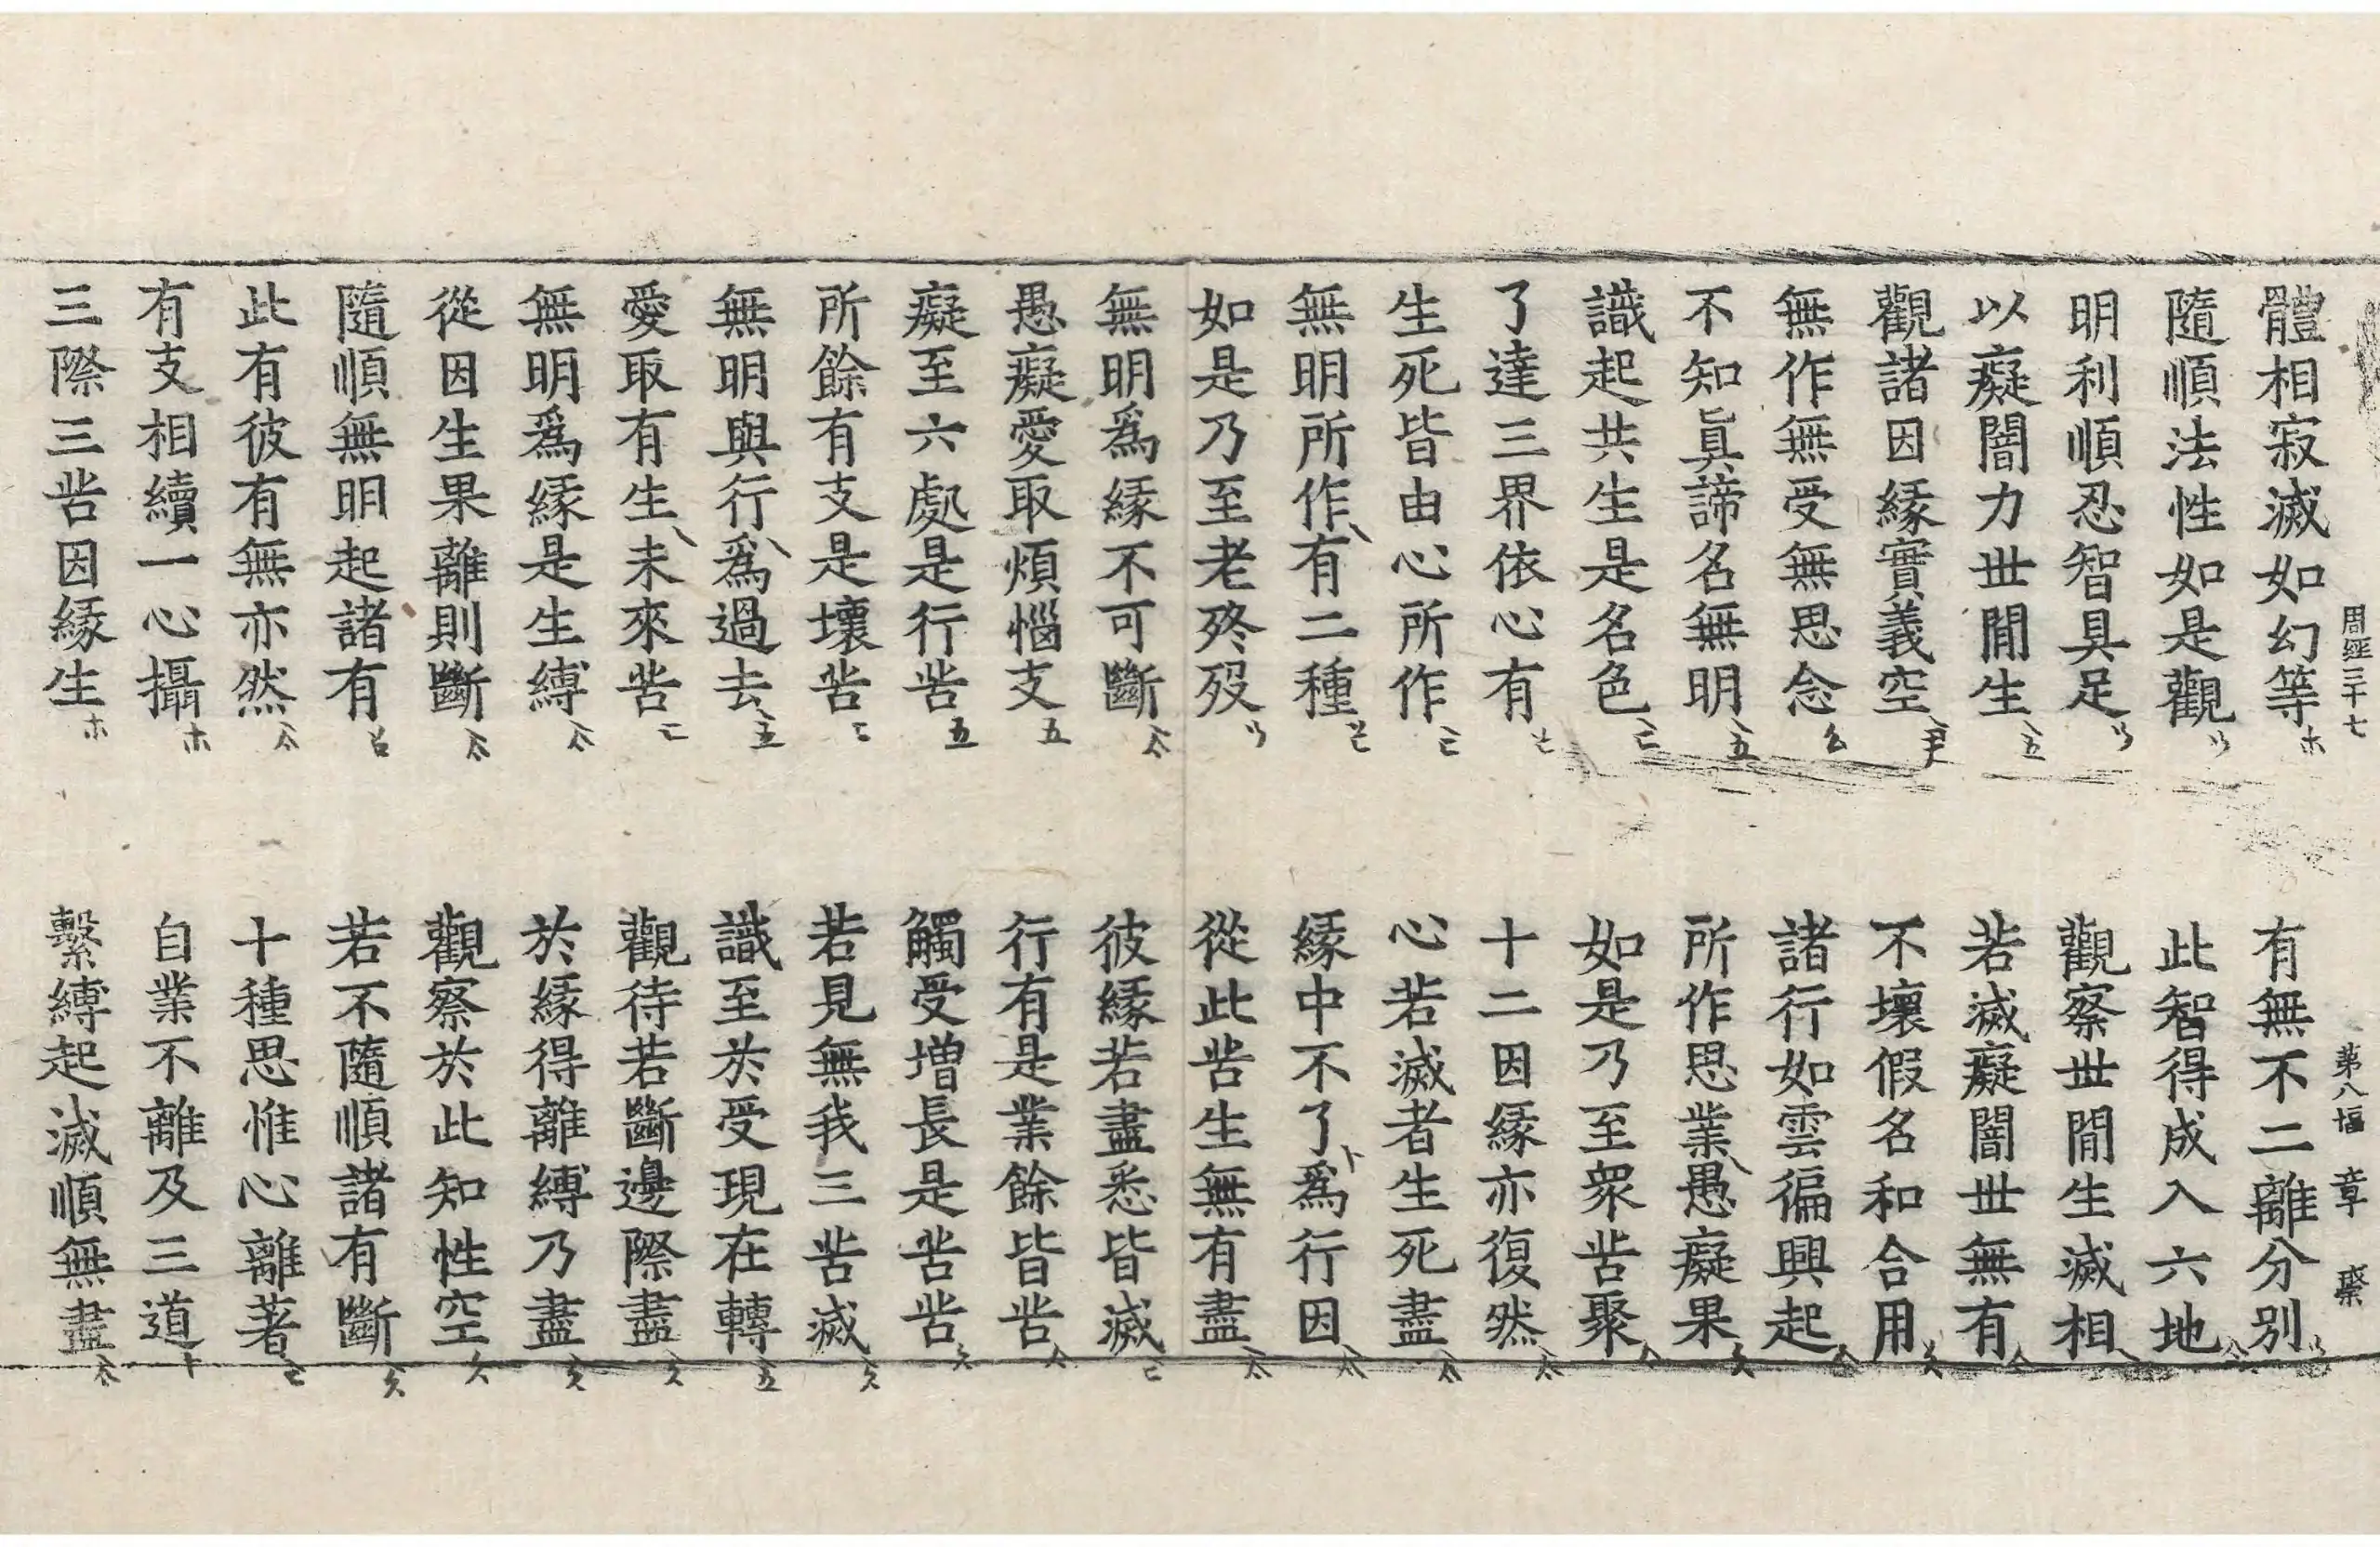 周經三十七 第八幅 章 蔡
體相寂滅如幻等 有無不二離分別
隨順法性如是觀 此智得成入六地
明利順忍智具足 觀察世閒生滅相
以癡闇力世閒生 若滅癡闇世無有
觀諸因緣實義空 不壞假名和合用
無作無受無思念 諸行如雲徧興起
不知眞諦名無明 所作思業愚癡果
識起共生是名色 如是乃至衆苦聚
了達三界依心有 十二因緣亦復然
生死皆由心所作 心若滅者生死盡
無明所作有二種 緣中不了爲行因
如是乃至老終歿 從此苦生無有盡
無明爲緣不可斷 彼緣若盡悉皆滅
愚癡愛取煩惱支 行有是業餘皆苦
癡至六處是行苦 觸受增長是苦苦
所餘有支是壞苦 若見無我三苦滅
無明與行爲過去 識至於受現在轉
愛取有生未來苦 觀待若斷邊際盡
無明爲緣是生縛 於緣得離縛乃盡
從因生果離則斷 觀察於此知性空
隨順無明起諸有 若不隨順諸有斷
此有彼有無亦然 十種思惟心離著
有支相續一心攝 自業不離及三道
三際三苦因緣生 繫縛起滅順無盡